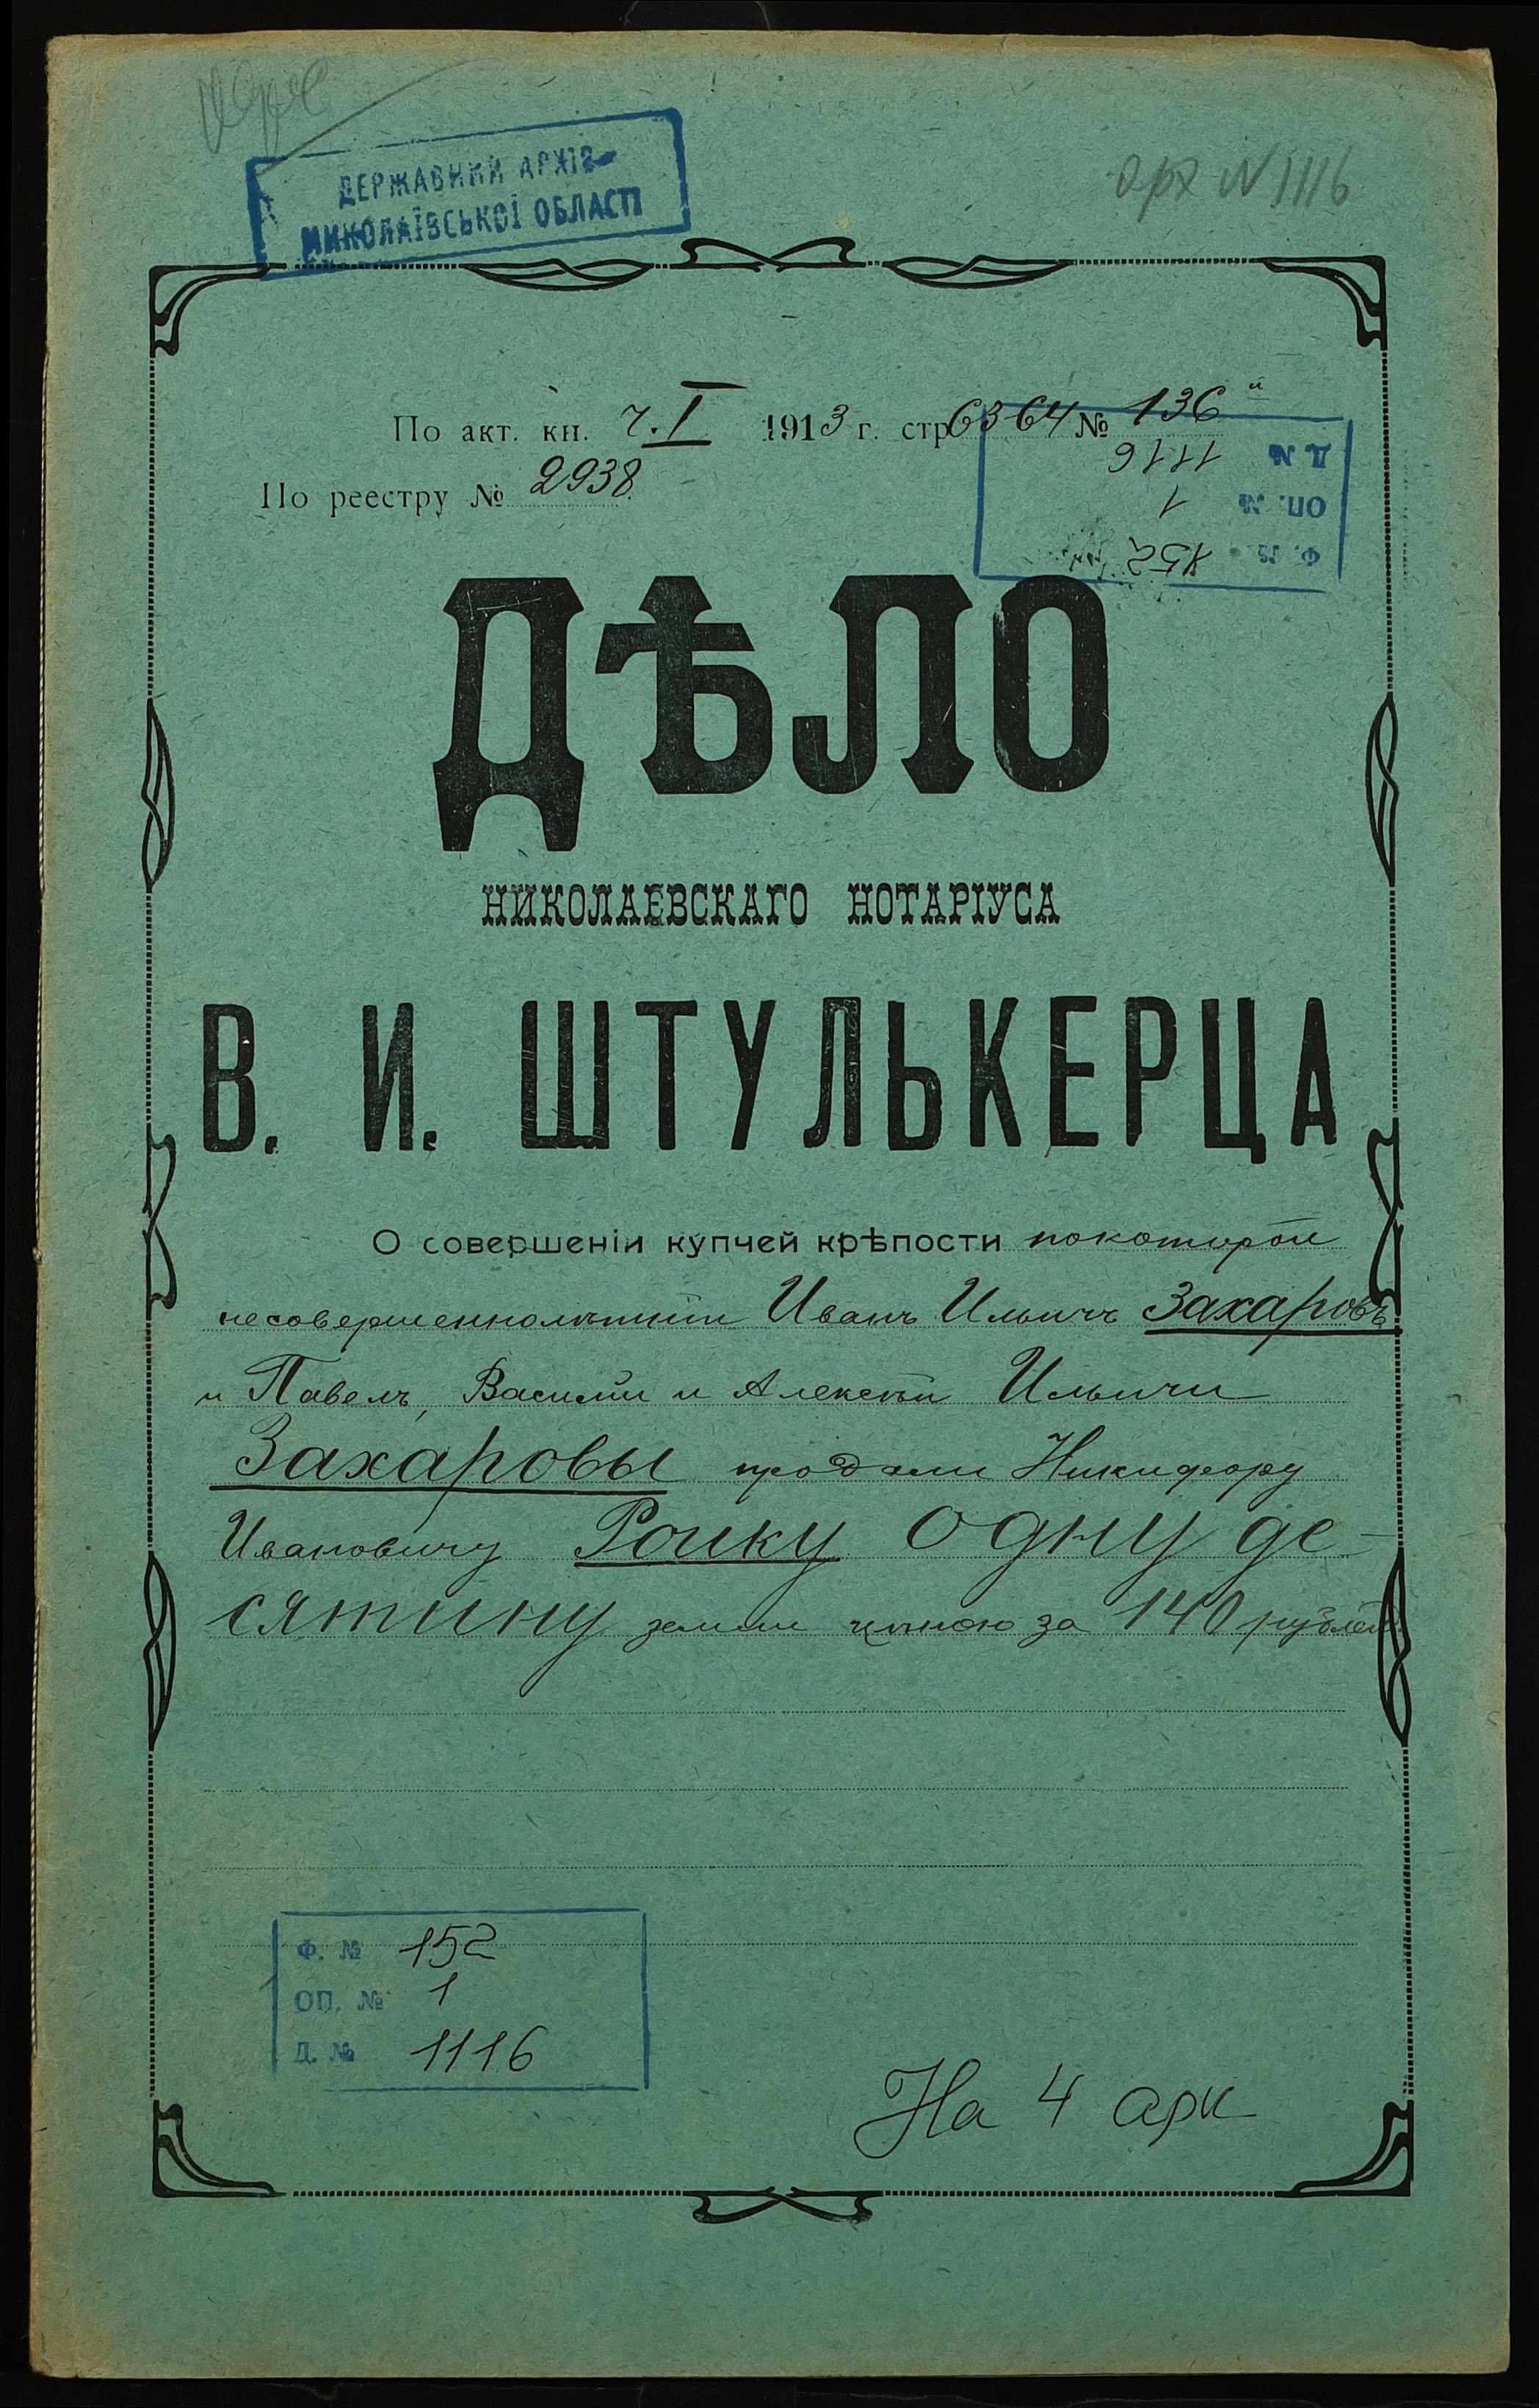 ДЕРЖАВНИЙ АРХІВ
МИКОЛАЇВСЬКОЇ ОБЛАСТІ
арх № 1116
По акт. кн. ч. I 1913 г. стр 63-64 № 136
По реестру № 2938
Д. № 1116
ОП. № 1
Ф. № 152
ДѢЛО
НИКОЛАЕВСКАГО НОТАРІУСА
В. И. ШТУЛЬКЕРЦА
О совершеніи купчей крѣпости по которой
несовершеннолѣтній Иванъ Ильичъ Захаровъ
и Павелъ, Василій и Алексѣй Ильичи
Захаровы продали Никифору
Ивановичу Роику одну де-
сятину земли цѣною за 140 рублей
Ф. № 152
ОП. № 1
Д. № 1116
На 4 арк